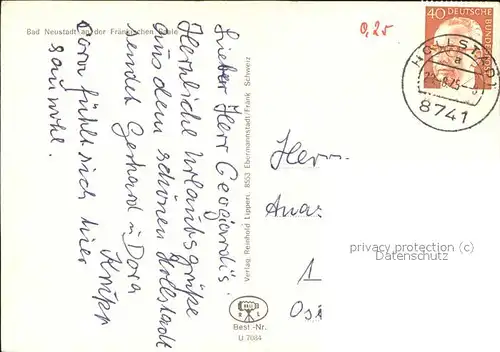 Bad Neustadt an der Fränkischen Saale
0,25
40 DEUTSCHE BUNDESPOST
HOLLSTADT 1
a
8741
Lieber Herr
Herzliche Urlaubsgrüße
aus dem schönen Hollstadt
sendet Gerhard u. Dora
Krupp
Dora fühlt sich hier
sauwohl.
Verlag Reinhold Lippert, 8553 Ebermannstadt/Fränk. Schweiz
R L
Best.-Nr.
U 7084
Herrn
1
privacy protection
copyright ©